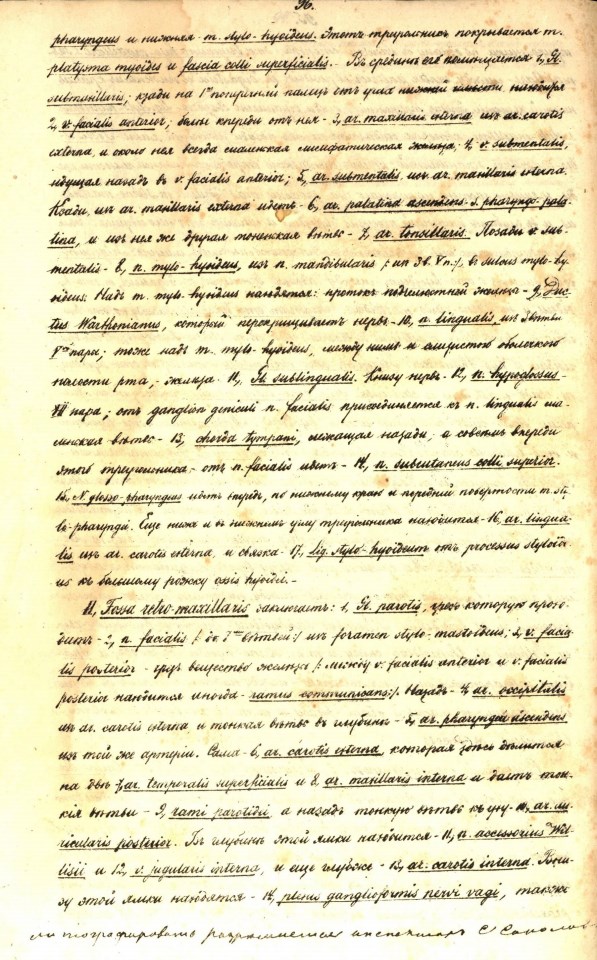 96.
pharyngeus и нижняя - m. stylo-hyoideus. Этотъ триугольникъ покрывается m.
platysma myoides и fascia colli superficialis. - Въ срединѣ его помѣщается 1, Gl.
submaxillaris; кзади на 1 поперечный палецъ отъ угла нижней челюсти находится
2, v. facialis anterior; болѣе кпереди отъ нея - 3, ar. maxillaris externa изъ ar. carotis
externa, и около нея всегда маленькая лимфатическая железа; 4, v. submentalis,
идущая назадъ въ v. facialis anterior; 5, ar. submentalis, изъ ar. maxillaris externa.
Кзади, изъ ar. maxillaris externa идетъ - 6, ar. palatina ascendens s. pharyngo-pala-
tina, и изъ нея же другая тоненькая вѣтвь - 7, ar. tonsillaris. Позади v. sub-
mentalis - 8, n. mylo-hyoideus, изъ n. mandibularis /: из 3 в. V п :/, въ sulcus mylo-hy-
oideus: Надъ m. mylo-hyoideus находятся: протокъ подчелюстной железы - 9, Duc-
tus Warthonianus, который перекрещиваетъ нервъ - 10, n. lingualis, изъ 3 вѣтви
V пары; тоже надъ m. mylo-hyoideus, между нимъ и слизистой оболочкой
полости рта, - железа 11, Gl. sublingualis. Книзу нервъ - 12, n. hypoglossus -
XII пара; отъ ganglion geniculi n. facialis присоединяется къ n. lingualis ма-
ленькая вѣтвь - 13, chorda tympani, лежащая назади; а совсѣмъ впереди
этого треугольника - отъ n. facialis идетъ - 14, n. subcutaneus colli superior.
15, N. glosso-pharyngeus идетъ впередъ, по нижнему краю и передней поверхности m. sty-
lo-pharyngei. Еще ниже и въ нижнемъ углу триугольника находится - 16, ar. lingua-
lis изъ ar. carotis externa, и связка - 17, lig. stylo-hyoideum отъ processus styloide-
us къ большому рожку ossis hyoidei. -
11, Fossa retro-maxillaris заключаетъ: 1, Gl. parotis, чрезъ которую прохо-
дитъ - 2, n. facialis /: до 7 вѣтвей :/ изъ foramen stylo-mastoideus; 3, v. facia-
lis posterior - чрезъ вещество железы /: между v. facialis anterior и v. facialis
posterior находится иногда - ramus communicans :/. Назадъ - 4, ar. occipitalis
изъ ar. carotis externa и тонкая вѣтвь въ глубинѣ - 5, ar. pharyngea ascendens
изъ той же артеріи. Сама - 6, ar. carotis externa, которая здѣсь дѣлится
на двѣ 7, ar. temporalis superficialis и 8, ar. maxillaris interna и даетъ тон-
кія вѣтви - 9, rami parotidei, а назадъ тонкую вѣтвь къ уху - 10, ar. au-
ricularis posterior. Въ глубинѣ этой ямки находится - 11, n. accessorius Wil-
lisii и 12, v. jugularis interna, и еще глубже - 13, ar. carotis interna. Вни-
зу этой ямки находятся - 14, plexus ganglioformis nervi vagi, также
литографировать разрѣшается инспекторъ С Соколовъ